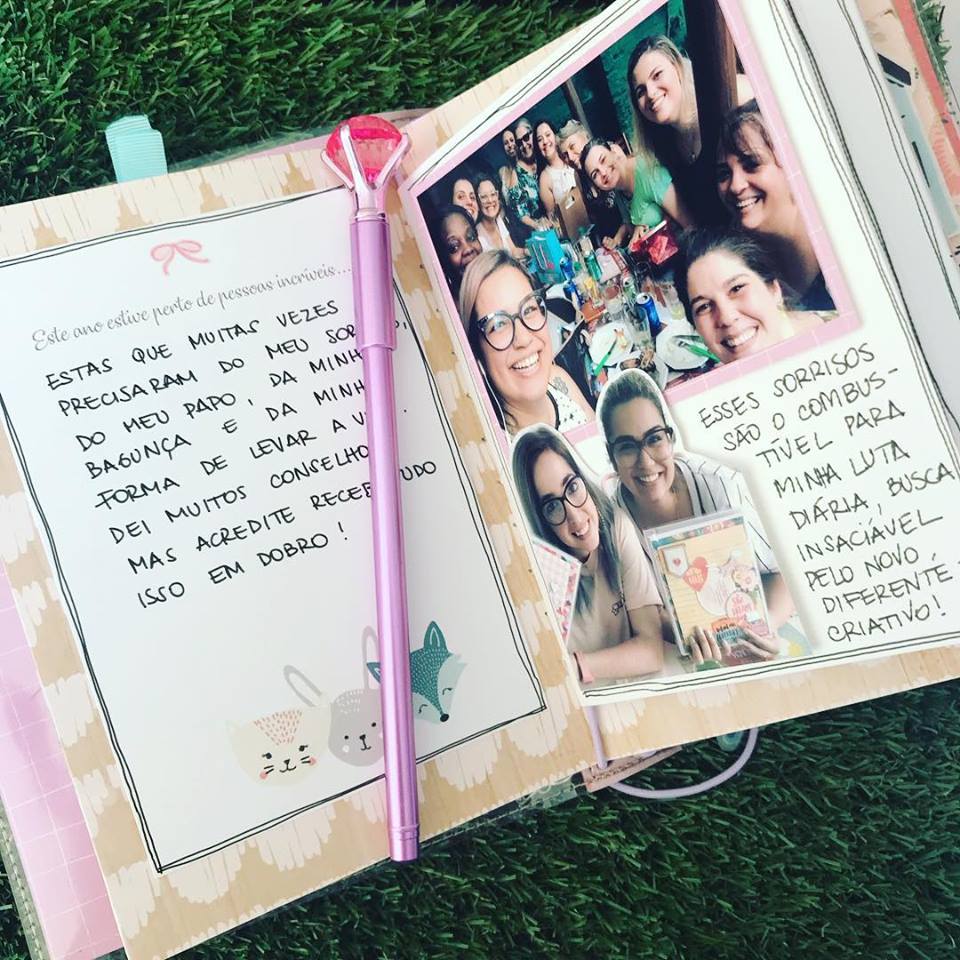 Este ano estive perto de pessoas incríveis...
ESTAS QUE MUITAS VEZES
PRECISARAM DO MEU
DO MEU PAPO, DA
BAGUNÇA E DA MINHA
FORMA DE LEVAR A
DEI MUITOS
MAS ACREDITE TUDO
ISSO EM DOBRO!
ESSES SORRISOS
SÃO O COMBUS-
TÍVEL PARA
MINHA LUTA
DIÁRIA, BUSCA
INSACIÁVEL
PELO NOVO,
DIFERENTE,
CRIATIVO!